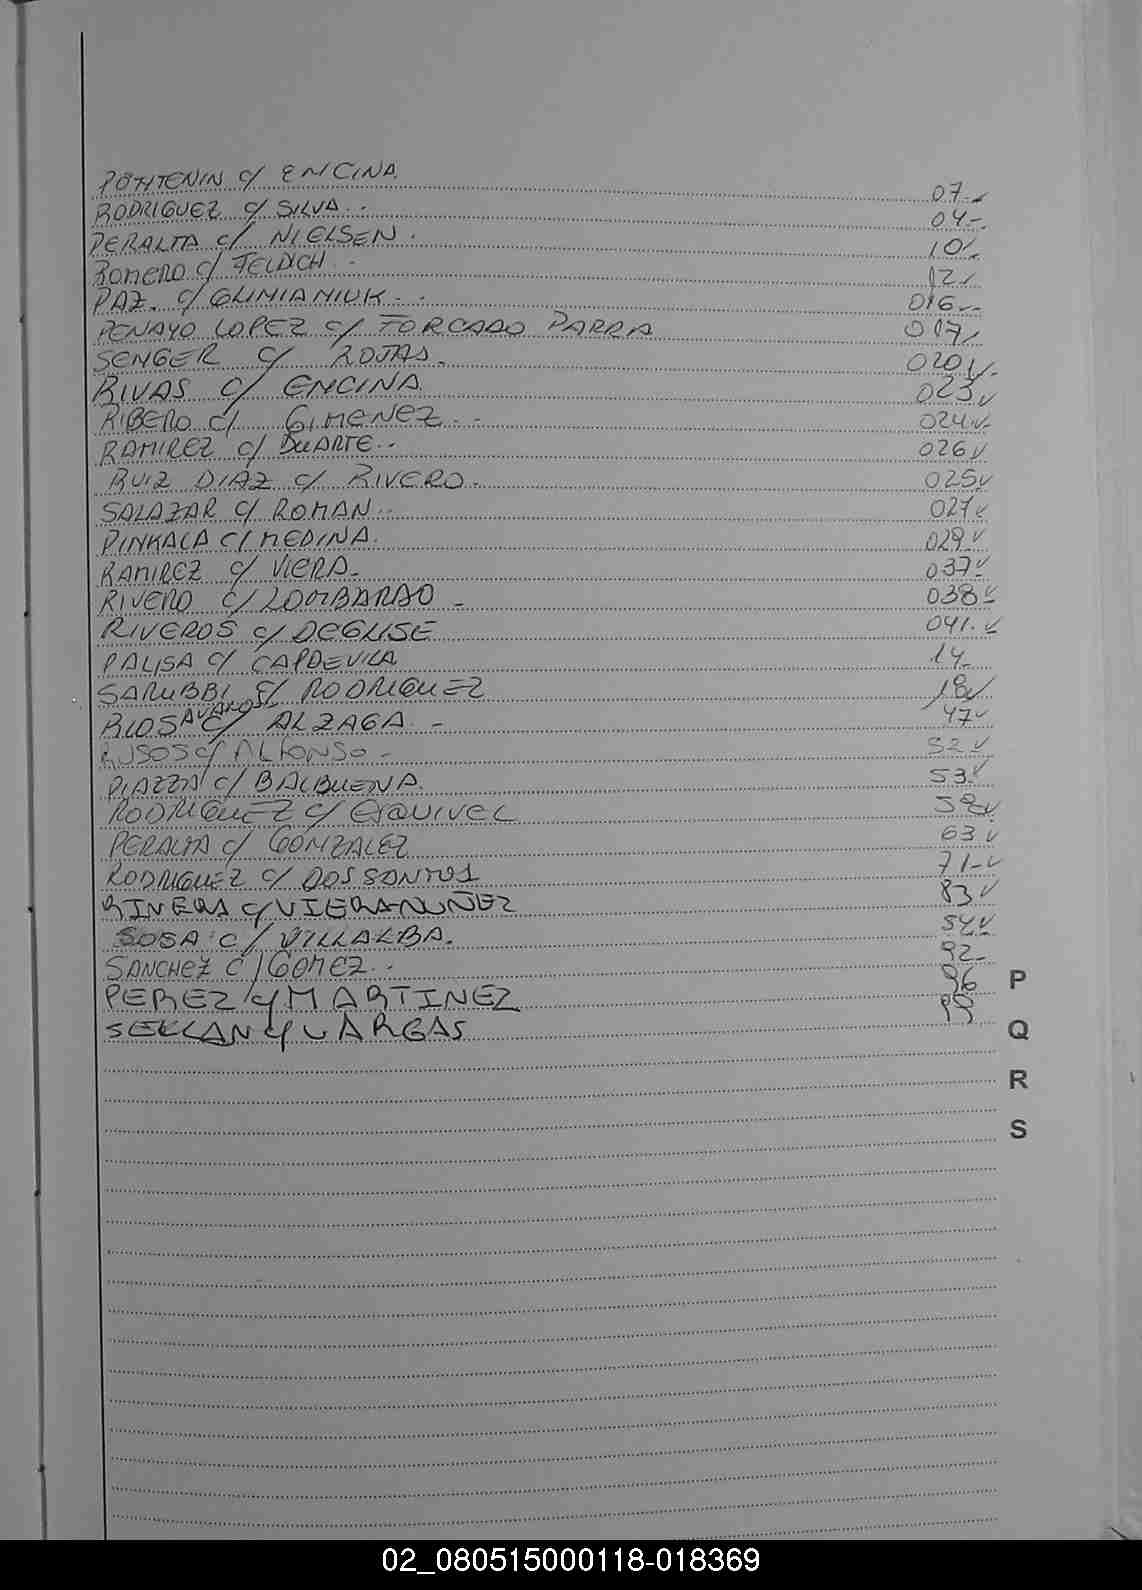 POHTENIN c/ ENCINA 07
RODRIGUEZ c/ SILVA 04
PERALTA c/ NIELSEN 10
ROMERO c/ FELDICH 12
PAZ c/ GLIMIANIUK 016
PENAYO LOPEZ c/ FORCADO PARRA 017
SENGER c/ ROJAS 020
RIVAS c/ ENCINA 023
RIBERO c/ GIMENEZ 024
RAMIREZ c/ DUARTE 026
RUIZ DIAZ c/ RIVERO 025
SALAZAR c/ ROMAN 027
PINKALA c/ MEDINA 029
RAMIREZ c/ VIERA 037
RIVERO c/ LOMBARDO 038
RIVEROS c/ DEGLISE 041
PALISA c/ CAPDEVILA 14
SARUBBI c/ RODRIGUEZ 18
RIOS AVALOS c/ ALZAGA 47
RUSOS c/ ALFONSO 52
PIAZZA c/ BALBUENA 53
RODRIGUEZ c/ ESQUIVEL
PERALTA c/ GONZALEZ 63
RODRIGUEZ c/ DOS SANTOS 71
RIVERA c/ VIERA NUÑEZ 83
SOSA c/ VILLALBA
SANCHEZ c/ GOMEZ 92
PEREZ c/ MARTINEZ 96
SELLAN c/ VARGAS 99
P
Q
R
S
02_080515000118-018369